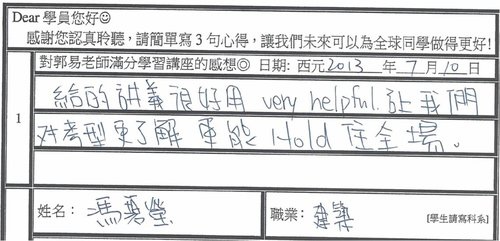 Dear 學員您好☺
感謝您認真聆聽，請簡單寫3句心得，讓我們未來可以為全球同學做得更好!
對郭易老師滿分學習講座的感想◎ 日期: 西元2013 年 7 月 10 日
1
給的講義很好用 very helpful. 讓我們
對考型更了解 更能 Hold 住全場。
姓名： 馮 瑩
職業： 建築 [學生請寫科系]